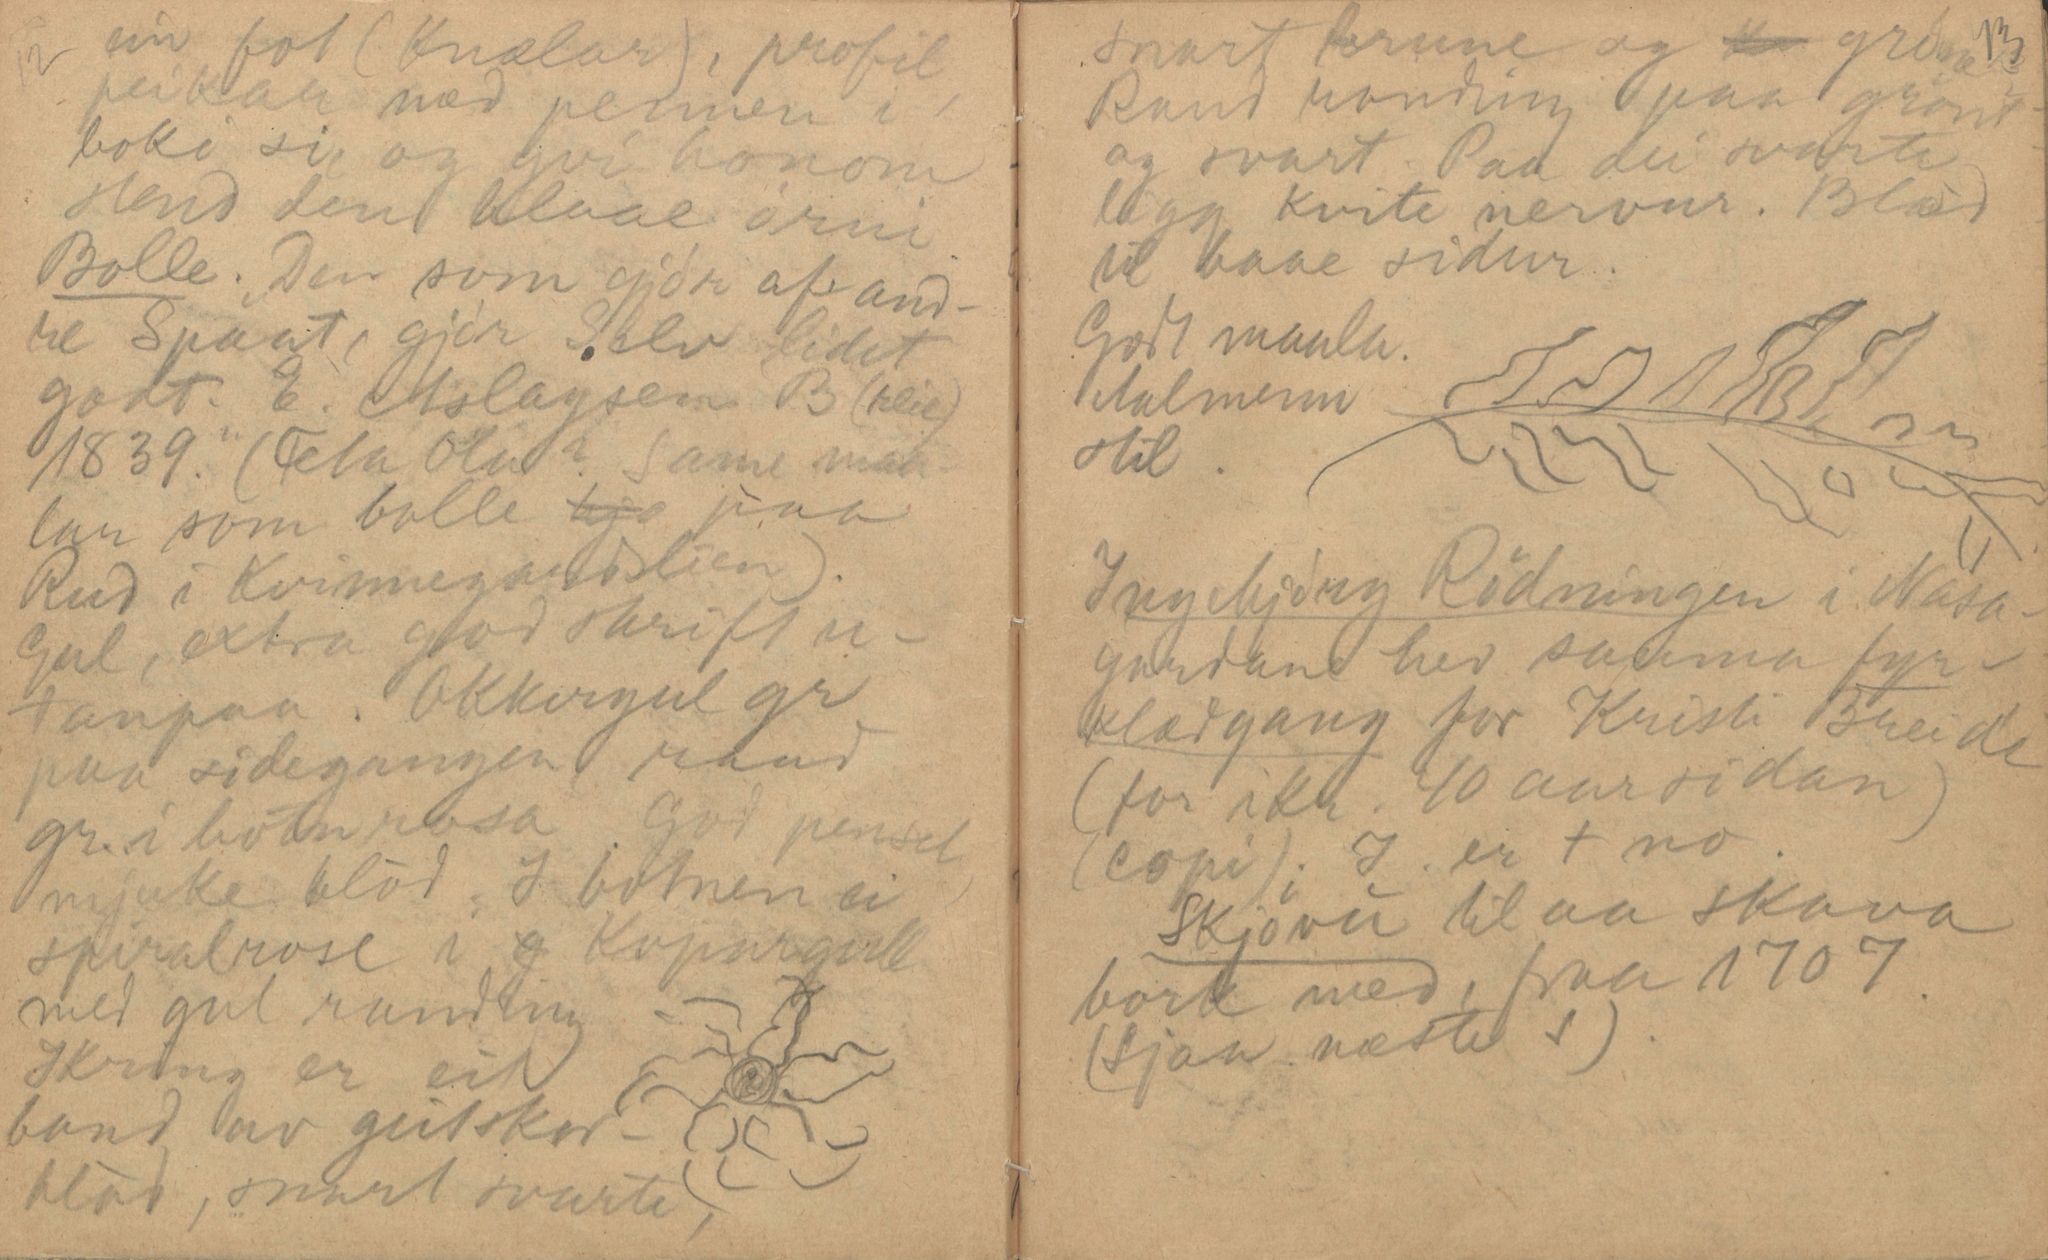 12
ein fot (Knælar), profil,
peikar med pennen i
boki si, og gvi honom
stend den blaae örni
Bolle. "Den som gjör af and-
re Spaat, gjör Selv lidet
godt. E. Aslagsen B (reie)
1839." (Feta Ola? Same maa-
lar som bolle hjo paa
Rud i Kvinnegardslien).
Gul, extra god skrift u-
tanpaa. Okkergul gr
paa sidegangen, raud
gr. i botn rosa. God pensel,
mjuke blöd. I botnen ei
spiralrose i g Kopargull
med gul runding
Ikring er eit
band av geitskor-
blöd, snart svarte,
13
snart brune og gröne
Raud runding paa grönt
og svart. Paa dei svarte
ligg kvite nervur. Blad
til baae sidur.
Godt maala.
Aalmenn
stil.
Ingebjörg Rödningen i Nasa-
gardane hev samma fyr-
kladgang for Kristi Breide
(for ikr. 40 aar sidan)
(copi); I. er † no.
Skjövu til aa skava
bork med, fraa 1707.
(Sjaa næste s).